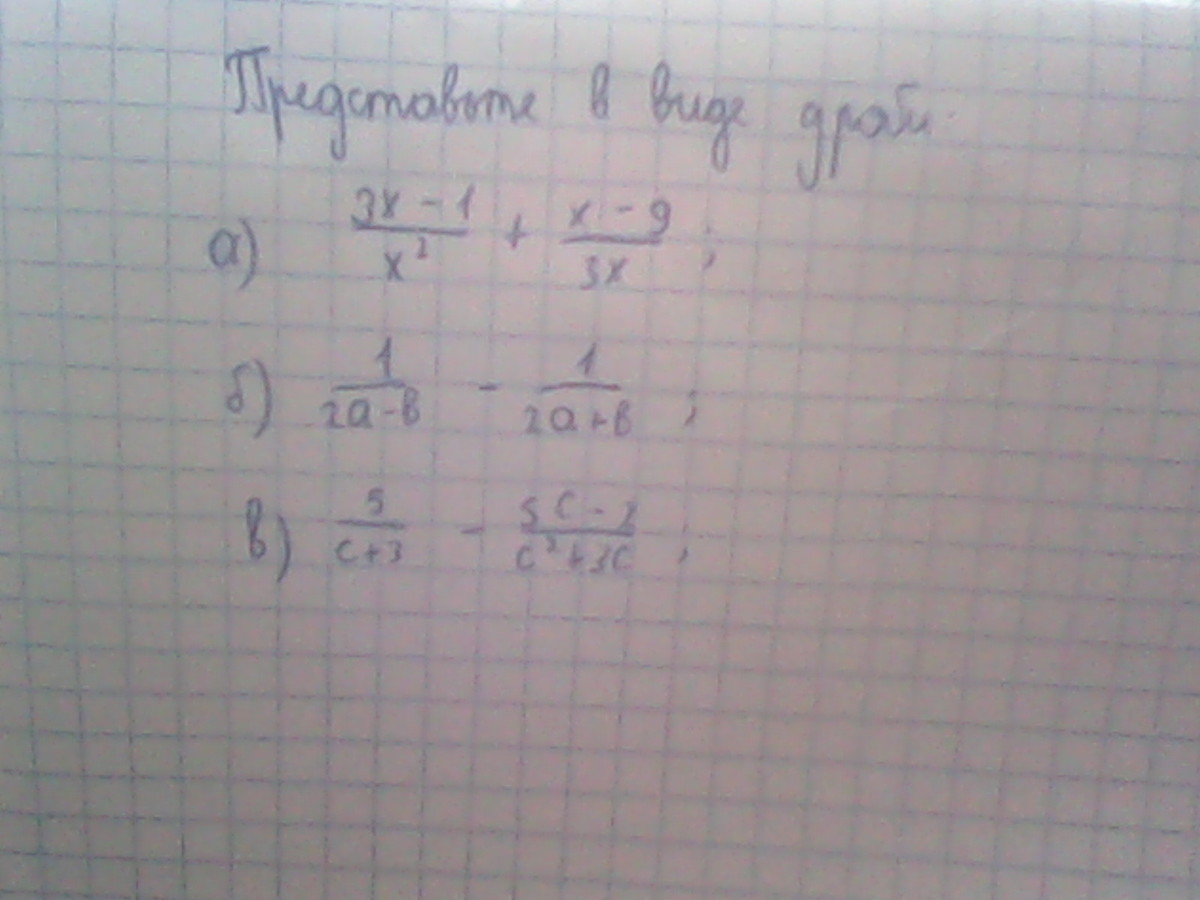 Представьте в виде дроби
а) (3x - 1)/x² + (x - 9)/3x ;
б) 1/(2a - b) - 1/(2a + b) ;
в) 5/(c+3) - (5c - 2)/(c² + 3c) ;